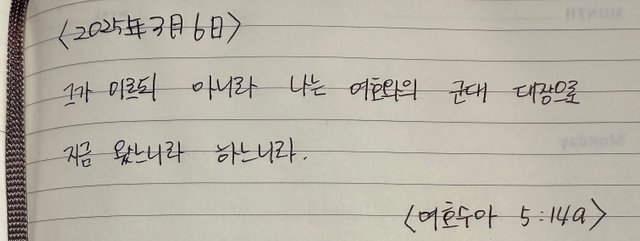 <2025年3月6日>
그가 이르되 아니라 나는 여호와의 군대 대장으로
지금 왔느니라 하느니라.
<여호수아 5:14a>
MONTH
Monday